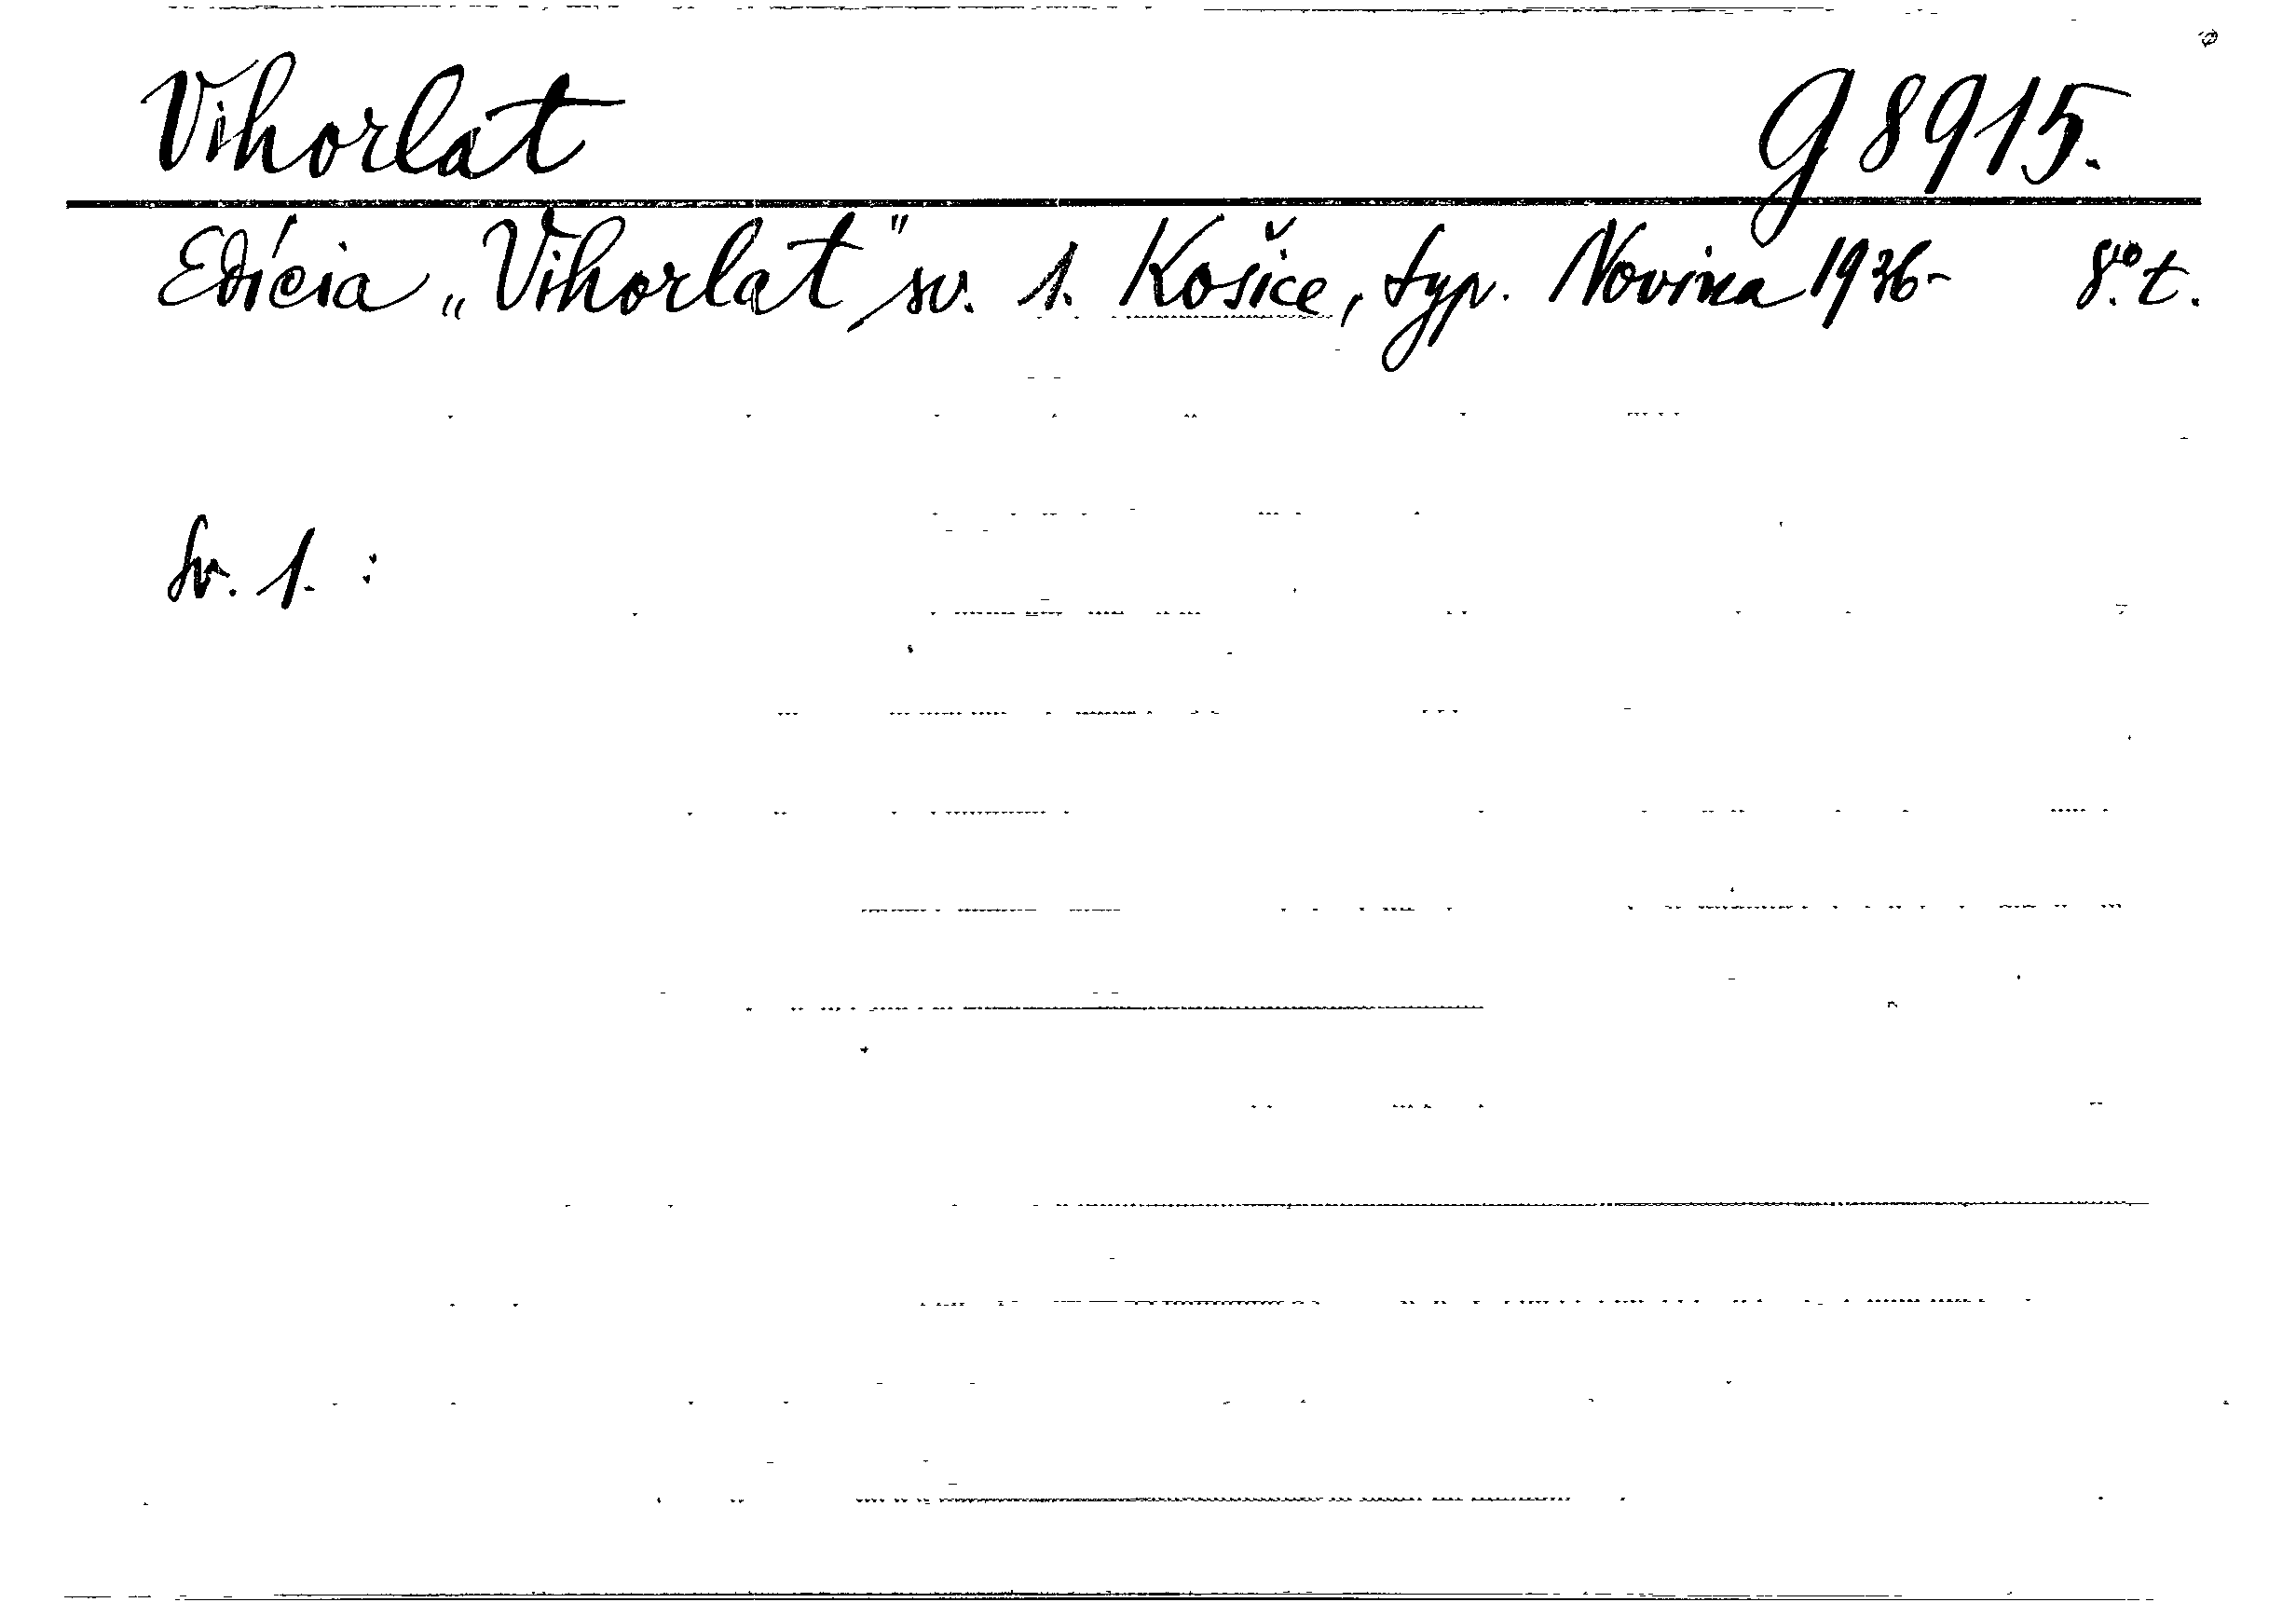 Vihorlat G 8915.
Edícia „Vihorlat" sv. 1. Košice, typ. Novina 1936- 8.° t.
Sv. 1. :